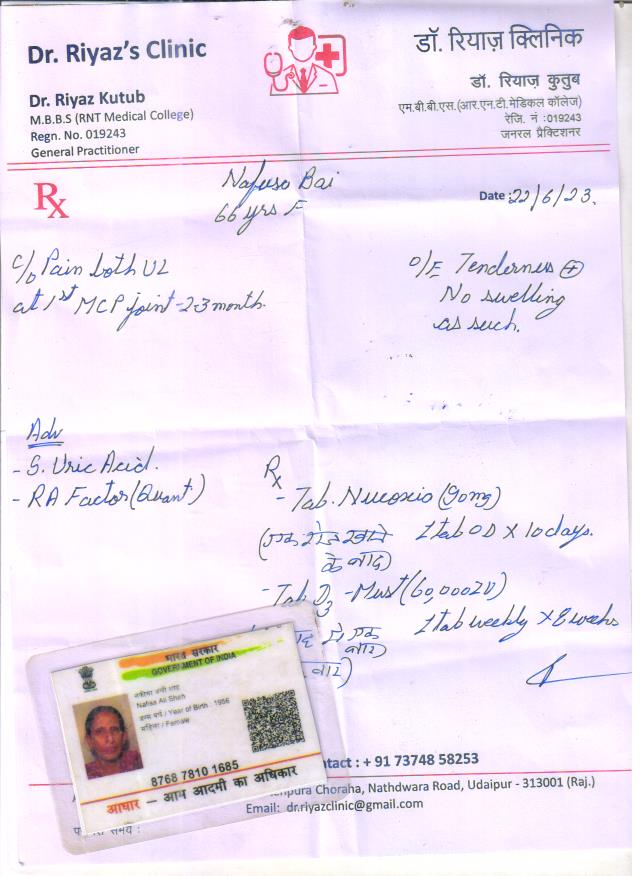 Dr. Riyaz's Clinic
Dr. Riyaz Kutub
M.B.B.S (RNT Medical College)
Regn. No. 019243
General Practitioner
डॉ. रियाज़ क्लिनिक
डॉ. रियाज़ कुतुब
एम.बी.बी.एस.(आर.एन.टी.मेडिकल कॉलेज)
रेजि. नं :019243
जनरल प्रैक्टिशनर
Rx
Nafuso Bai
66 yrs F
Date : 22/6/23.
C/o Pain both UL
at 1st MCP joint - 2-3 month.
O/E Tenderness ⊕
No swelling
as such.
Adv
- S. Uric Acid.
- RA Factor (Quant)
Rx
- Tab. Nucoxio (90mg)
(एक रोज खाने 1 tab OD X 10 days.
के बाद)
- Tab D3 - Must (60,000 IU)
में एक 1 tab weekly X 8 weeks
बार)
भारत सरकार
GOVERNMENT OF INDIA
Nafisa Ali Shah
जन्म वर्ष / Year of Birth : 1956
महिला / Female
8768 7810 1685
आधार – आम आदमी का अधिकार
ntact : + 91 73748 58253
npura Choraha, Nathdwara Road, Udaipur - 313001 (Raj.)
Email: dr.riyazclinic@gmail.com
समय :